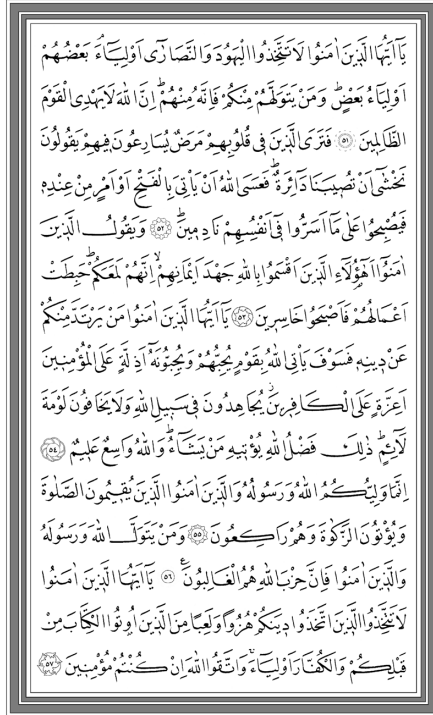 يَٓا اَيُّهَا الَّذ۪ينَ اٰمَنُوا لَا تَتَّخِذُوا الْيَهُودَ وَالنَّصَارٰٓى اَوْلِيَٓاءَۢ بَعْضُهُمْ
اَوْلِيَٓاءُ بَعْضٍۜ وَمَنْ يَتَوَلَّهُمْ مِنْكُمْ فَاِنَّهُ مِنْهُمْۜ اِنَّ اللّٰهَ لَا يَهْدِي الْقَوْمَ
الظَّالِم۪ينَ ﴿٥١﴾ فَتَرَى الَّذ۪ينَ ف۪ي قُلُوبِهِمْ مَرَضٌ يُسَارِعُونَ ف۪يهِمْ يَقُولُونَ
نَخْشٰٓى اَنْ تُص۪يبَنَا دَٓائِرَةٌۜ فَعَسَى اللّٰهُ اَنْ يَأْتِيَ بِالْفَتْحِ اَوْ اَمْرٍ مِنْ عِنْدِه۪
فَيُصْبِحُوا عَلٰى مَٓا اَسَرُّوا ف۪ٓي اَنْفُسِهِمْ نَادِم۪ينَۜ ﴿٥٢﴾ وَيَقُولُ الَّذ۪ينَ
اٰمَنُٓوا اَهٰٓؤُ۬لَٓاءِ الَّذ۪ينَ اَقْسَمُوا بِاللّٰهِ جَهْدَ اَيْمَانِهِمْۙ اِنَّهُمْ لَمَعَكُمْۜ حَبِطَتْ
اَعْمَالُهُمْ فَاَصْبَحُوا خَاسِر۪ينَ ﴿٥٣﴾ يَٓا اَيُّهَا الَّذ۪ينَ اٰمَنُوا مَنْ يَرْتَدَّ مِنْكُمْ
عَنْ د۪ينِه۪ فَسَوْفَ يَأْتِي اللّٰهُ بِقَوْمٍ يُحِبُّهُمْ وَيُحِبُّونَهُٓ اَذِلَّةٍ عَلَى الْمُؤْمِن۪ينَ
اَعِزَّةٍ عَلَى الْكَافِر۪ينَۘ يُجَاهِدُونَ ف۪ي سَب۪يلِ اللّٰهِ وَلَا يَخَافُونَ لَوْمَةَ
لَٓائِمٍۜ ذٰلِكَ فَضْلُ اللّٰهِ يُؤْت۪يهِ مَنْ يَشَٓاءُۜ وَاللّٰهُ وَاسِعٌ عَل۪يمٌ ﴿٥٤﴾
اِنَّمَا وَلِيُّكُمُ اللّٰهُ وَرَسُولُهُ وَالَّذ۪ينَ اٰمَنُوا الَّذ۪ينَ يُق۪يمُونَ الصَّلٰوةَ
وَيُؤْتُونَ الزَّكٰوةَ وَهُمْ رَاكِعُونَ ﴿٥٥﴾ وَمَنْ يَتَوَلَّ اللّٰهَ وَرَسُولَهُ
وَالَّذ۪ينَ اٰمَنُوا فَاِنَّ حِزْبَ اللّٰهِ هُمُ الْغَالِبُونَ۟ ﴿٥٦﴾ يَٓا اَيُّهَا الَّذ۪ينَ اٰمَنُوا
لَا تَتَّخِذُوا الَّذ۪ينَ اتَّخَذُوا د۪ينَكُمْ هُزُوًا وَلَعِبًا مِنَ الَّذ۪ينَ اُو۫تُوا الْكِتَابَ مِنْ
قَبْلِكُمْ وَالْكُفَّارَ اَوْلِيَٓاءَۚ وَاتَّقُوا اللّٰهَ اِنْ كُنْتُمْ مُؤْمِن۪ينَ ﴿٥٧﴾